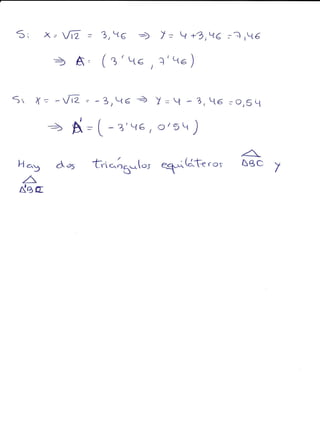 Si x = √12 = 3,46 ⇒ y = 4 + 3,46 = 7,46
⇒ A = (3'46, 7'46)
Si x = -√12 = -3,46 ⇒ y = 4 - 3,46 = 0,54
⇒ A' = (-3'46, 0'54)
Hay dos triángulos equiláteros ABC y
A'BC